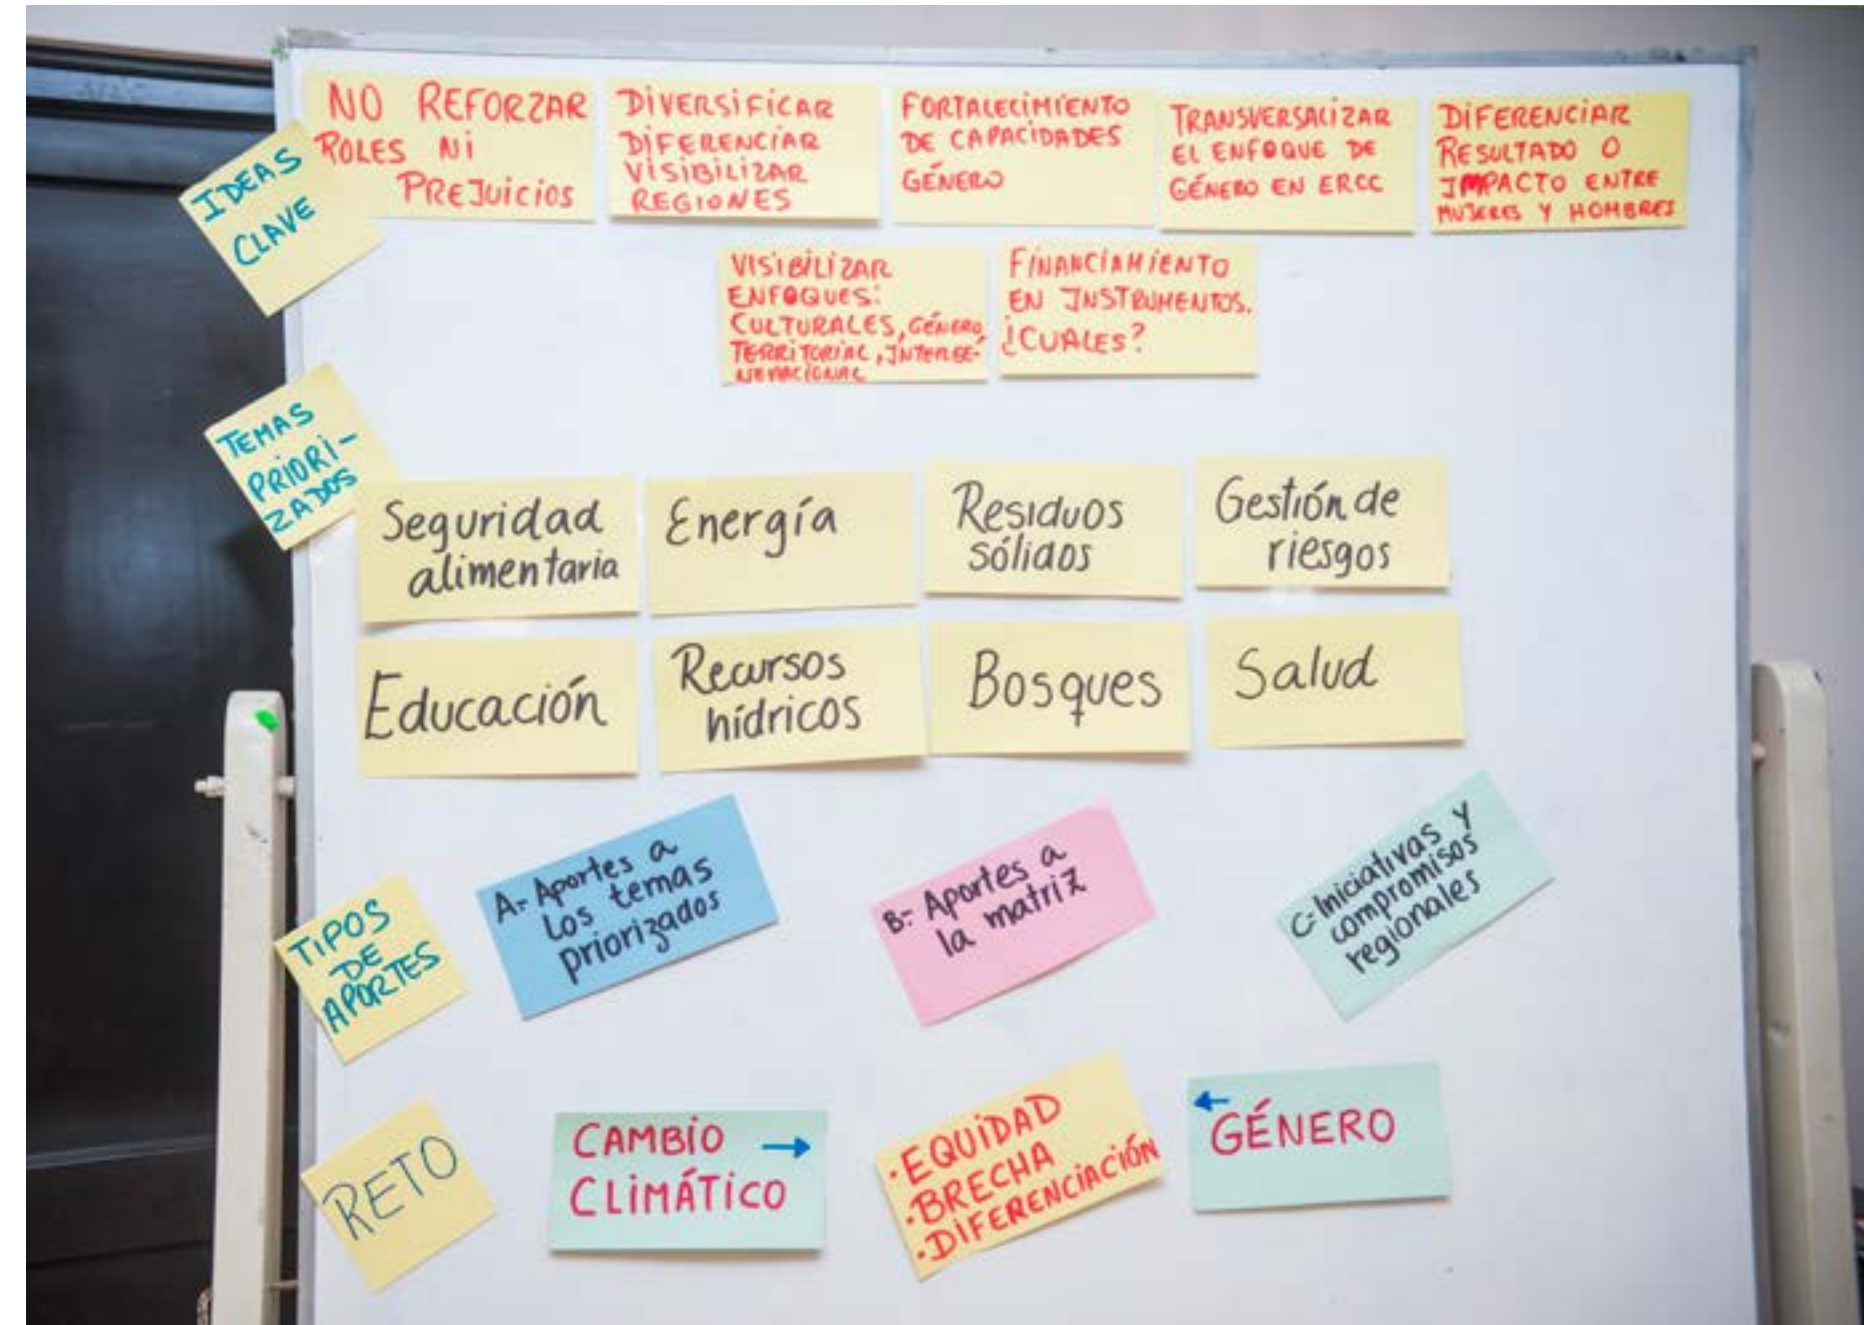 IDEAS
CLAVE
NO REFORZAR
ROLES Ni
PREJUiCiOS
DiVERSiFiCAR
DiFERENCiAR
ViSiBiLiZAR
REGiONES
FORTALECiMiENTO
DE CAPACiDADES
GÉNERO
TRANSVERSALiZAR
EL ENFOQUE DE
GÉNERO EN ERCC
DiFERENCiAR
RESULTADO O
IMPACTO ENTRE
MUJERES Y HOMBRES
ViSiBiLiZAR
ENFOQUES:
CULTURALES, GÉNERO,
TERRiTORiAL, INTERGE-
NERACiONAL
FiNANCiAMiENTO
EN INSTRUMENTOS.
¿CUALES?
TEMAS
PRiORi-
ZADOS
Seguridad
alimentaria
Energía
Residuos
sólidos
Gestión de
riesgos
Educación
Recursos
hídricos
Bosques
Salud
TiPOS
DE
APORTES
A- Aportes a
los temas
priorizados
B- Aportes a
la matriz
C- Iniciativas y
compromisos
regionales
RETO
CAMBiO →
CLiMÁTiCO
· EQUiDAD
· BRECHA
· DiFERENCiACiÓN
←
GÉNERO